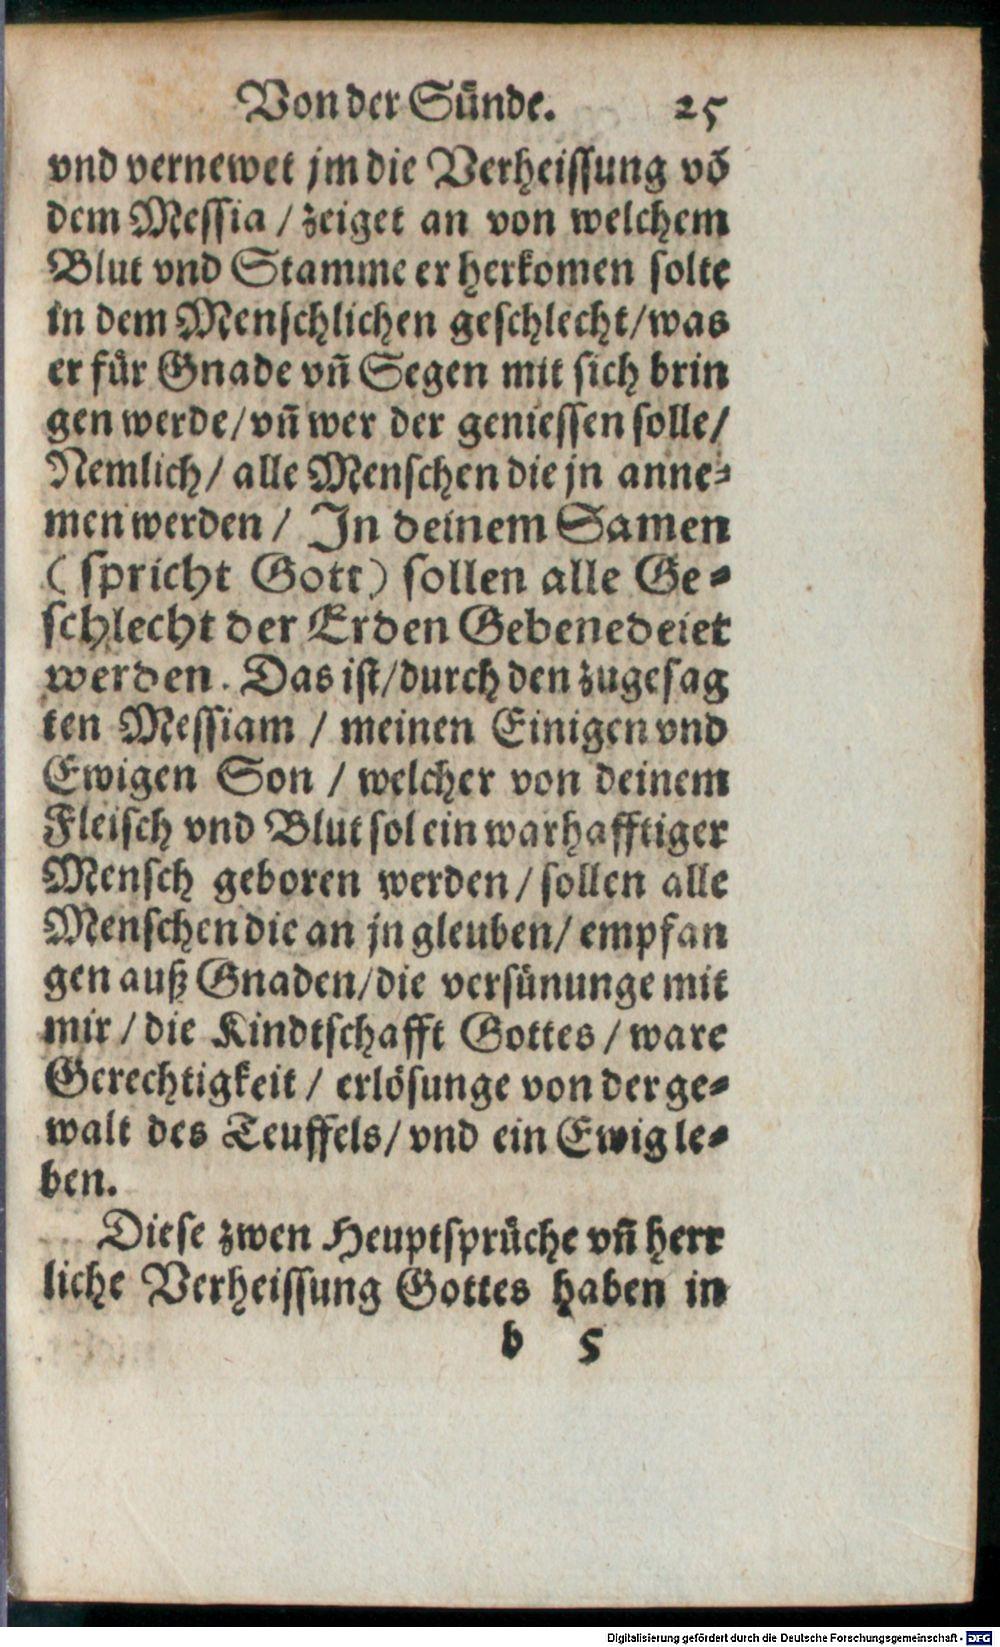 Von der Sünde. 25
vnd vernewet jm die Verheissung võ
dem Messia / zeiget an von welchem
Blut vnd Stamme er herkomen solte
in dem Menschlichen geschlecht/was
er für Gnade vñ Segen mit sich brin
gen werde/vñ wer der geniessen solle/
Nemlich/ alle Menschen die jn anne⸗
men werden / In deinem Samen
( spricht Gott) sollen alle Ge⸗
schlecht der Erden Gebenedeiet
werden. Das ist/durch den zugesag
ten Messiam / meinen Einigen vnd
Ewigen Son / welcher von deinem
Fleisch vnd Blut sol ein warhafftiger
Mensch geboren werden/ sollen alle
Menschen die an jn gleuben/ empfan
gen auß Gnaden/die versünunge mit
mir / die Kindtschafft Gottes / ware
Gerechtigkeit / erlösunge von der ge⸗
walt des Teuffels/ vnd ein Ewig le⸗
ben.
Diese zwen Heuptsprüche vñ herr
liche Verheissung Gottes haben in
b 5
Digitalisierung gefördert durch die Deutsche Forschungsgemeinschaft - DFG